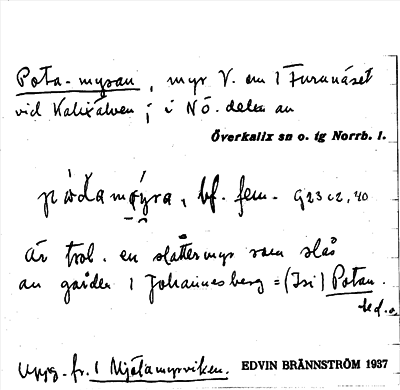 Pota-myran, myr V. om 1 Furunäset
vid Kalixälven; i NÖ. delen av
Överkalix sn o. tg Norrb. l.
bf. fem.
är trol. en slåttermyr som slås
av gården 1 Johannesberg = (Isi) Potan.
Uppg. fr. 1 Mjölamyrviken. EDVIN BRÄNNSTRÖM 1937